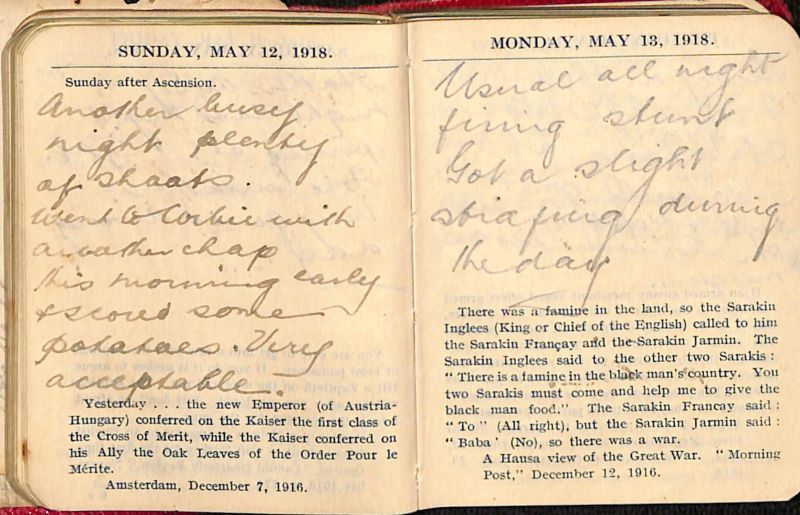 SUNDAY, MAY 12, 1918.
Sunday after Ascension.
Another busy
night plenty
of shoots.
Went to Corbie with
another chap
this morning early
& scored some
potatoes. Very
acceptable.
Yesterday . . . the new Emperor (of Austria-
Hungary) conferred on the Kaiser the first class of
the Cross of Merit, while the Kaiser conferred on
his Ally the Oak Leaves of the Order Pour le
Mérite.
Amsterdam, December 7, 1916.
MONDAY, MAY 13, 1918.
Usual all night
firing stunt
Got a slight
strafing during
the day
There was a famine in the land, so the Sarakin
Inglees (King or Chief of the English) called to him
the Sarakin Françay and the Sarakin Jarmin. The
Sarakin Inglees said to the other two Sarakis :
" There is a famine in the black man's country. You
two Sarakis must come and help me to give the
black man food." The Sarakin Francay said :
" To " (All right), but the Sarakin Jarmin said :
" Baba ' (No), so there was a war.
A Hausa view of the Great War. " Morning
Post," December 12, 1916.